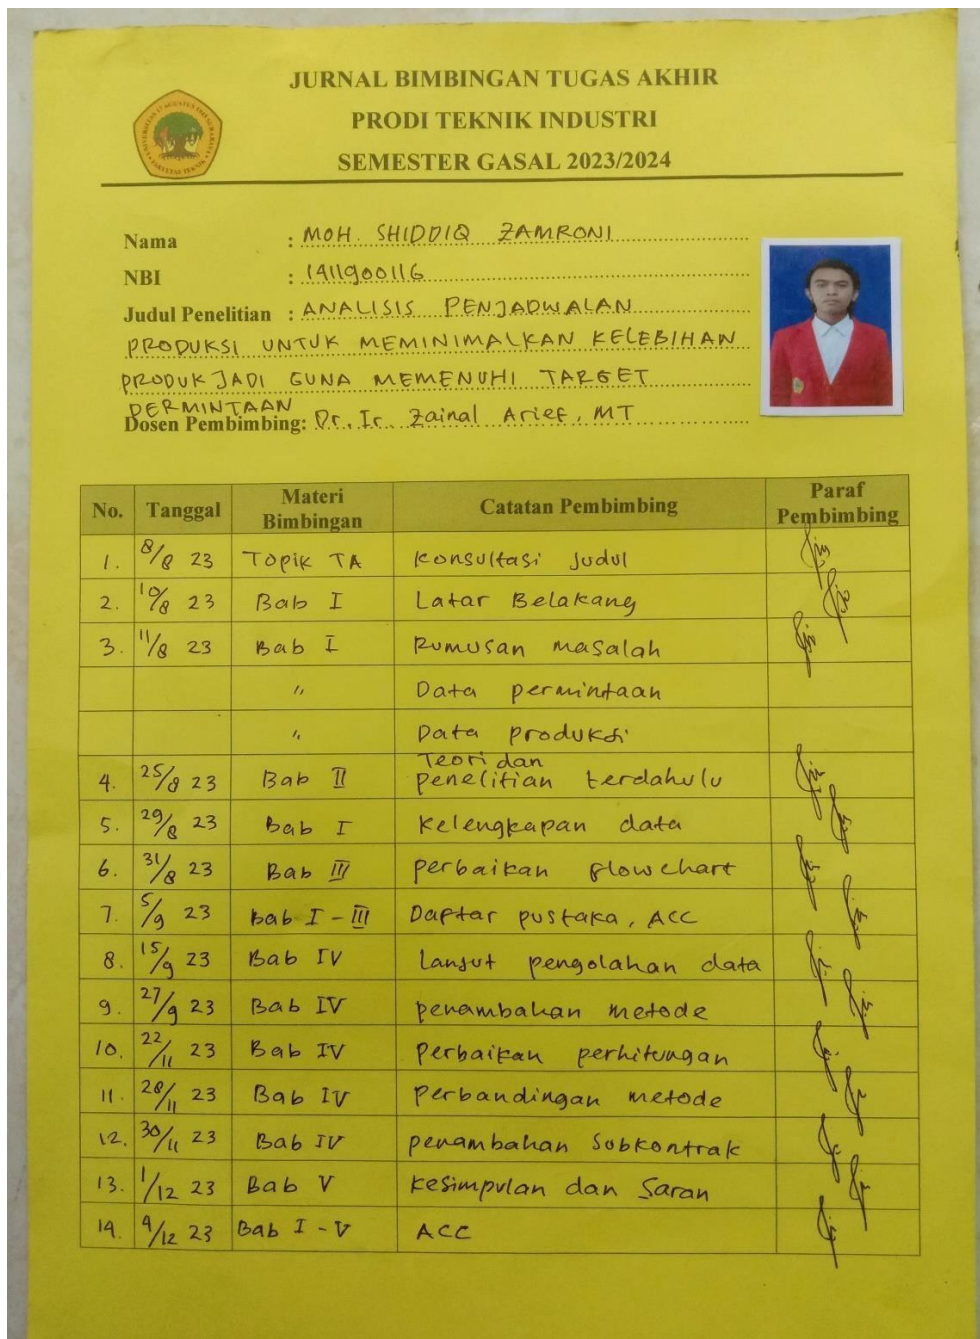 JURNAL BIMBINGAN TUGAS AKHIR
PRODI TEKNIK INDUSTRI
SEMESTER GASAL 2023/2024
Nama : MOH. SHIDDIQ ZAMRONI
NBI : 1411900116
Judul Penelitian : ANALISIS PENJADWALAN
PRODUKSI UNTUK MEMINIMALKAN KELEBIHAN
PRODUK JADI GUNA MEMENUHI TARGET
PERMINTAAN
Dosen Pembimbing: Dr. Ir. Zainal Arief, MT
No. Tanggal Materi Bimbingan Catatan Pembimbing Paraf Pembimbing
1. 8/8 23 Topik TA Konsultasi Judul
2. 10/8 23 Bab I Latar Belakang
3. 11/8 23 Bab I Rumusan masalah
" Data permintaan
" Data produksi
4. 25/8 23 Bab II Teori dan penelitian terdahulu
5. 29/8 23 Bab I Kelengkapan data
6. 31/8 23 Bab III perbaikan flowchart
7. 5/9 23 Bab I - III Daftar pustaka, ACC
8. 15/9 23 Bab IV Lanjut pengolahan data
9. 27/9 23 Bab IV penambahan metode
10. 22/11 23 Bab IV Perbaikan perhitungan
11. 28/11 23 Bab IV Perbandingan metode
12. 30/11 23 Bab IV penambahan Subkontrak
13. 1/12 23 Bab V Kesimpulan dan Saran
14. 4/12 23 Bab I - V ACC